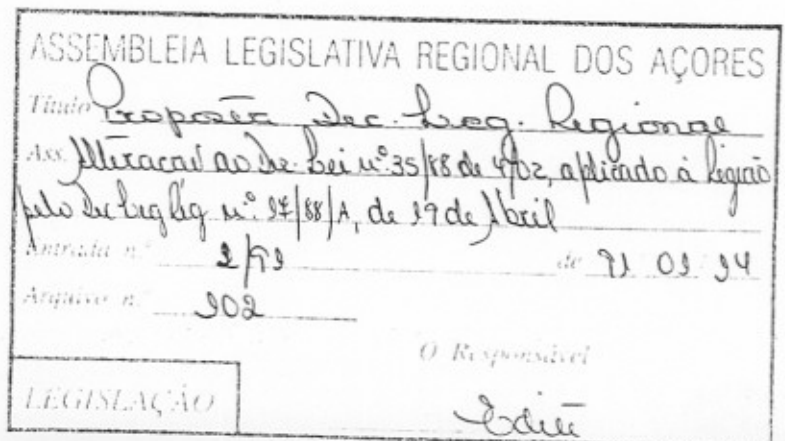 ASSEMBLEIA LEGISLATIVA REGIONAL DOS AÇORES
Título Proposta Dec. Leg. Regional
Ass. Alteração ao Dec. Lei nº 35/88 de 4/02, aplicado à Região
pelo Dec Leg Reg nº 17/88/A, de 19 de Abril
Entrada n.º 1/91 de 91 01 14
Arquivo n.º 102
O Responsável
LEGISLAÇÃO